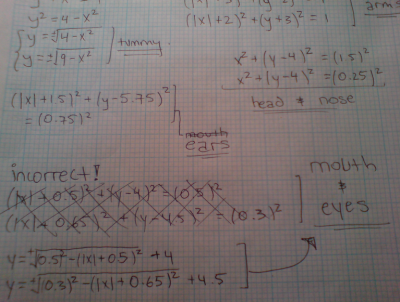 y² = 4 - x²
(|x|+2)² + (y+3)² = 1
arms
y = ±√4-x²
y = ±√9-x²
tummy.
x² + (y-4)² = (1.5)²
x² + (y-4)² = (0.25)²
head & nose
(|x|+1.5)² + (y-5.75)²
= (0.75)²
mouth
ears
incorrect!
(|x|+0.5)² + (y-4)² = (0.5)²
(|x|+0.65)² + (y-4.5)² = (0.3)²
mouth
&
eyes
y = ±√0.5² - (|x|+0.5)² + 4
y = ±√(0.3)² - (|x|+0.65)² + 4.5